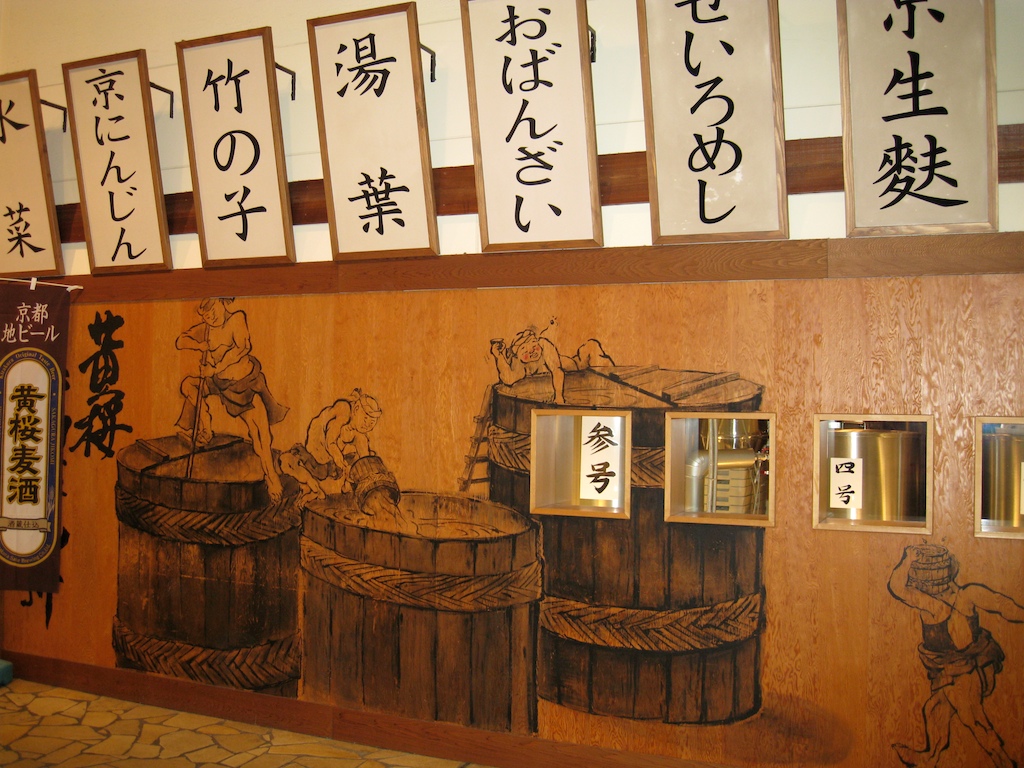 水菜
京にんじん
竹の子
湯葉
おばんざい
せいろめし
京生麩
京都
地ビール
黄桜麦酒
酒蔵仕込
黄桜
参号
四号